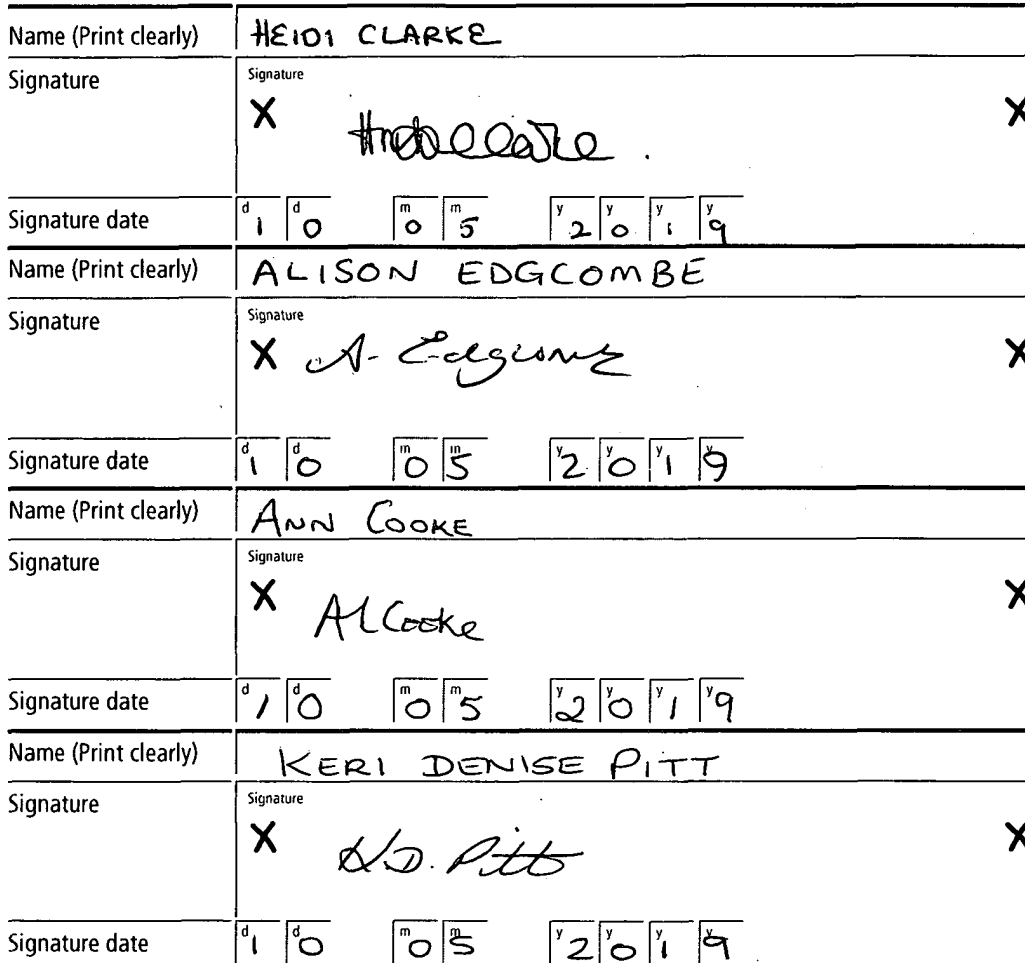 Name (Print clearly) HEIDI CLARKE
Signature Signature
X X
Signature date d 1 d 0 m 0 m 5 y 2 y 0 y 1 y 9
Name (Print clearly) ALISON EDGCOMBE
Signature Signature
X A. Edgcombe X
Signature date d 1 d 0 m 0 m 5 y 2 y 0 y 1 y 9
Name (Print clearly) ANN COOKE
Signature Signature
X AL Cooke X
Signature date d 1 d 0 m 0 m 5 y 2 y 0 y 1 y 9
Name (Print clearly) KERI DENISE PITT
Signature Signature
X K.D. Pitt X
Signature date d 1 d 0 m 0 m 5 y 2 y 0 y 1 y 9